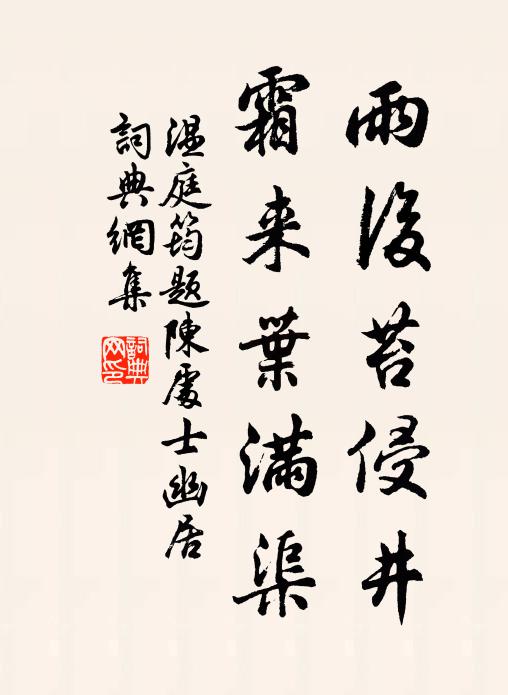 雨後苔侵井
霜来葉滿渠
温庭筠題陳處士幽居
詞典網集
詞典網印